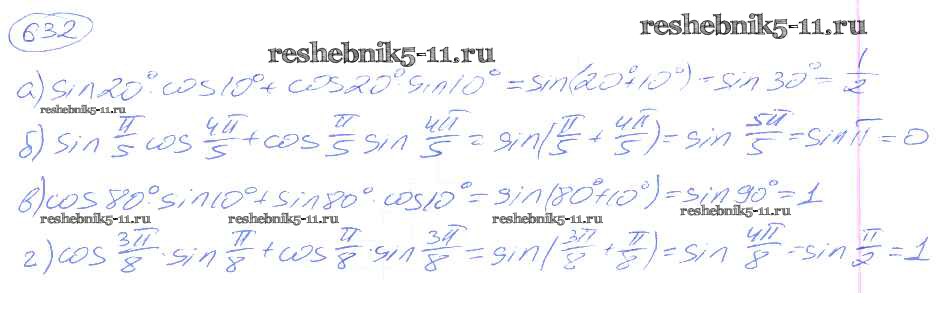 632
reshebnik5-11.ru
reshebnik5-11.ru
а) sin20°·cos10° + cos20°·sin10° = sin(20°+10°) = sin 30° = 1/2
reshebnik5-11.ru
б) sin π/5 cos 4π/5 + cos π/5 sin 4π/5 = sin(π/5 + 4π/5) = sin 5π/5 = sin π = 0
в) cos80°·sin10° + sin80°·cos10° = sin(80°+10°) = sin90° = 1
reshebnik5-11.ru reshebnik5-11.ru reshebnik5-11.ru reshebnik5-11.ru
г) cos 3π/8·sin π/8 + cos π/8·sin 3π/8 = sin(3π/8 + π/8) = sin 4π/8 = sin π/2 = 1